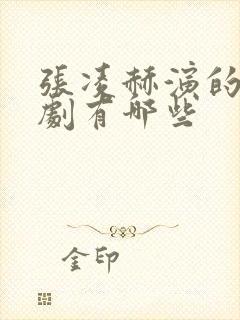 張凌赫演的
劇有哪些
金印